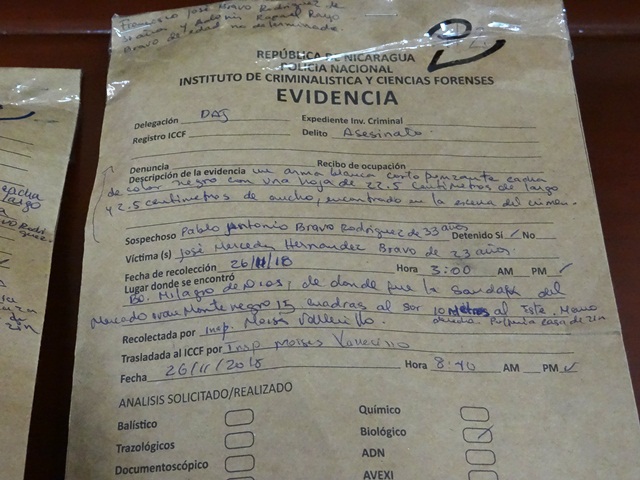 Francisco José Bravo Rodríguez de
años y Antonio Rafael Rayo
Bravo de edad no determinada.
REPÚBLICA DE NICARAGUA
POLICIA NACIONAL
INSTITUTO DE CRIMINALISTICA Y CIENCIAS FORENSES
EVIDENCIA
Delegación DAJ Expediente Inv. Criminal
Registro ICCF Delito Asesinato.
Denuncia Recibo de ocupación
Descripción de la evidencia un arma blanca corto punzante cacha
de color negro con una hoja de 22.5 centímetros de largo
y 2.5 centímetros de ancho, encontrado en la escena del crimen.
Sospechoso Pablo Antonio Bravo Rodríguez de 33 años Detenido Si ✓ No
Víctima (s) José Mercedes Hernández Bravo de 23 años.
Fecha de recolección 26/11/18 Hora 3:00 AM PM ✓
Lugar donde se encontró
Bo. Milagro de Dios, de donde fue la Sandak del
Mercado Ivan Montenegro 15 cuadras al sur 10 metros al Este. Mano
derecha casa de zin
Recolectada por Insp. Moises Vallecillo.
Trasladada al ICCF por Insp Moises Vallecillo
Fecha 26/11/2018 Hora 8:40 AM PM ✓
ANALISIS SOLICITADO/REALIZADO
Balístico Químico
Trazológicos Biológico ✓
Documentoscópico ADN
AVEXI